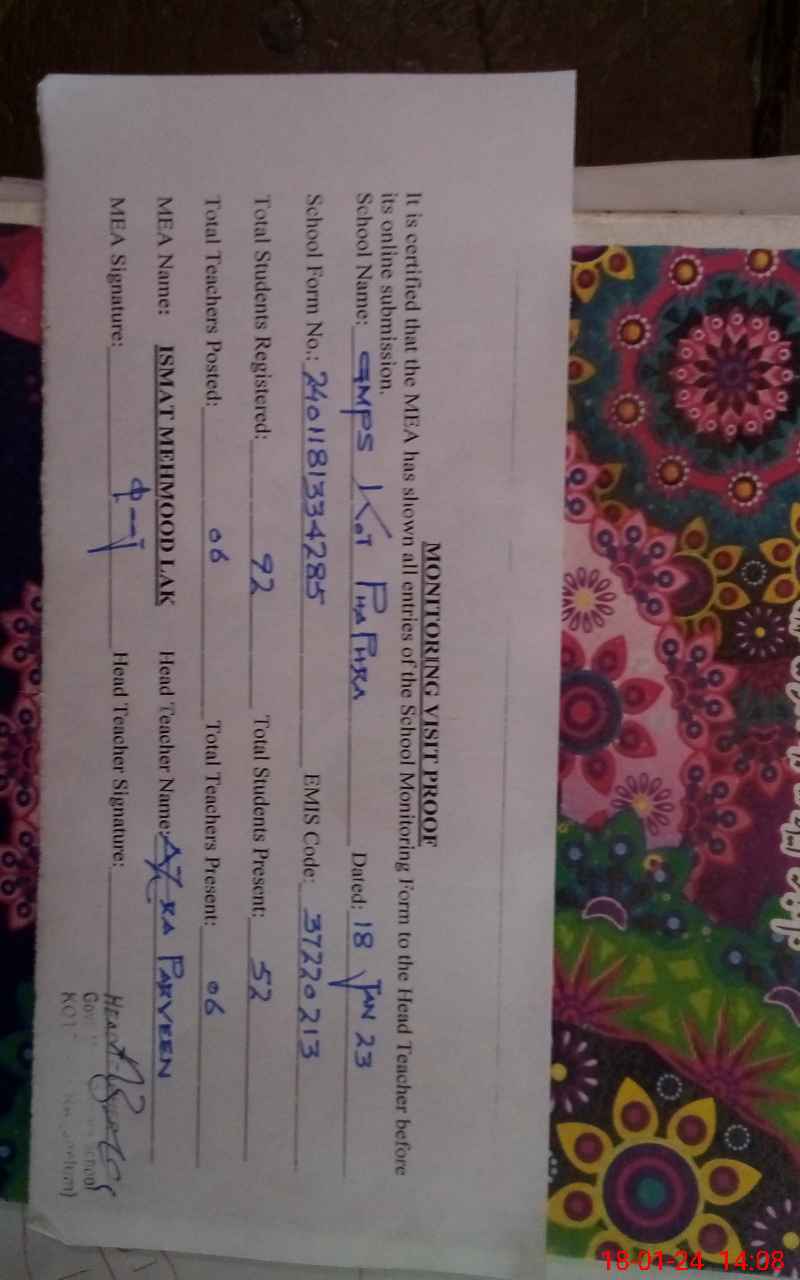 MONITORING VISIT PROOF
It is certified that the MEA has shown all entries of the School Monitoring Form to the Head Teacher before
its online submission.
School Name: GMPS KOT PHAPHRA Dated: 18 JAN 23
School Form No.: 2401181334285 EMIS Code: 37220213
Total Students Registered: 92 Total Students Present: 52
Total Teachers Posted: 06 Total Teachers Present: 06
MEA Name: ISMAT MEHMOOD LAK Head Teacher Name: AZRA PARVEEN
MEA Signature: Head Teacher Signature:
School
18-01-24 14:08